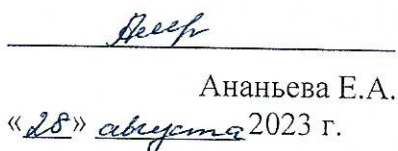 Ананьева Е.А.
«28» августа 2023 г.